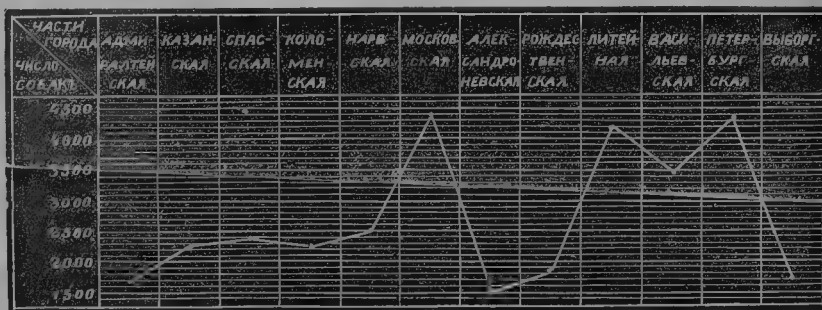 ЧАСТИ
ГОРОДА
ЧИСЛО
СОБАКЪ
АДМИ-
РАЛТЕЙ
СКАЯ
КАЗАН-
СКАЯ
СПАС-
СКАЯ
КОЛО-
МЕН
СКАЯ
НАРВ
СКАЯ
МОСКОВ
СКАЯ
АЛЕК-
САНДРО
НЕВСКАЯ
РОЖДЕС
ТВЕН-
СКАЯ
ЛИТЕЙ
НАЯ
ВАСИ-
ЛЬЕВ-
СКАЯ
ПЕТЕР-
БУРГ-
СКАЯ
ВЫБОРГ-
СКАЯ
4500
4000
3500
3000
2500
2000
1500